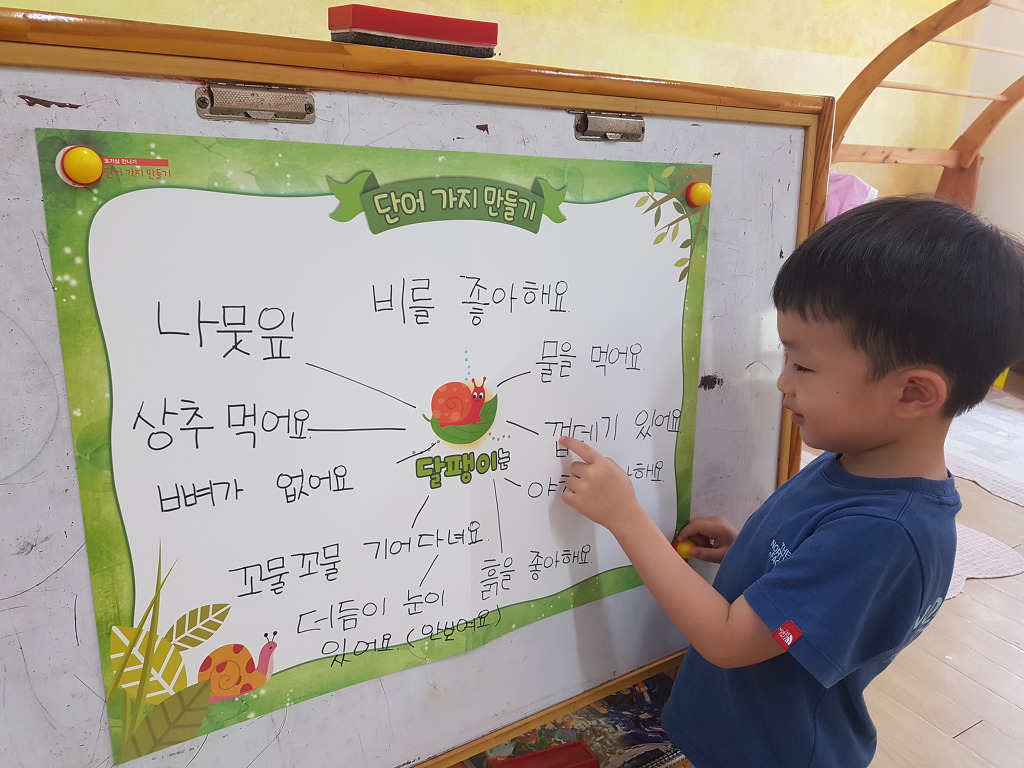 호기심 만나기
단어 가지 만들기
단어 가지 만들기
비를 좋아해요.
나뭇잎
물을 먹어요.
상추 먹어요.
껍데기 있어요
달팽이는
뼈가 없어요
해요.
꼬물꼬물 기어다녀요.
흙을 좋아해요.
더듬이 눈이
있어요. (안보여요)
THE
NORTH
FACE